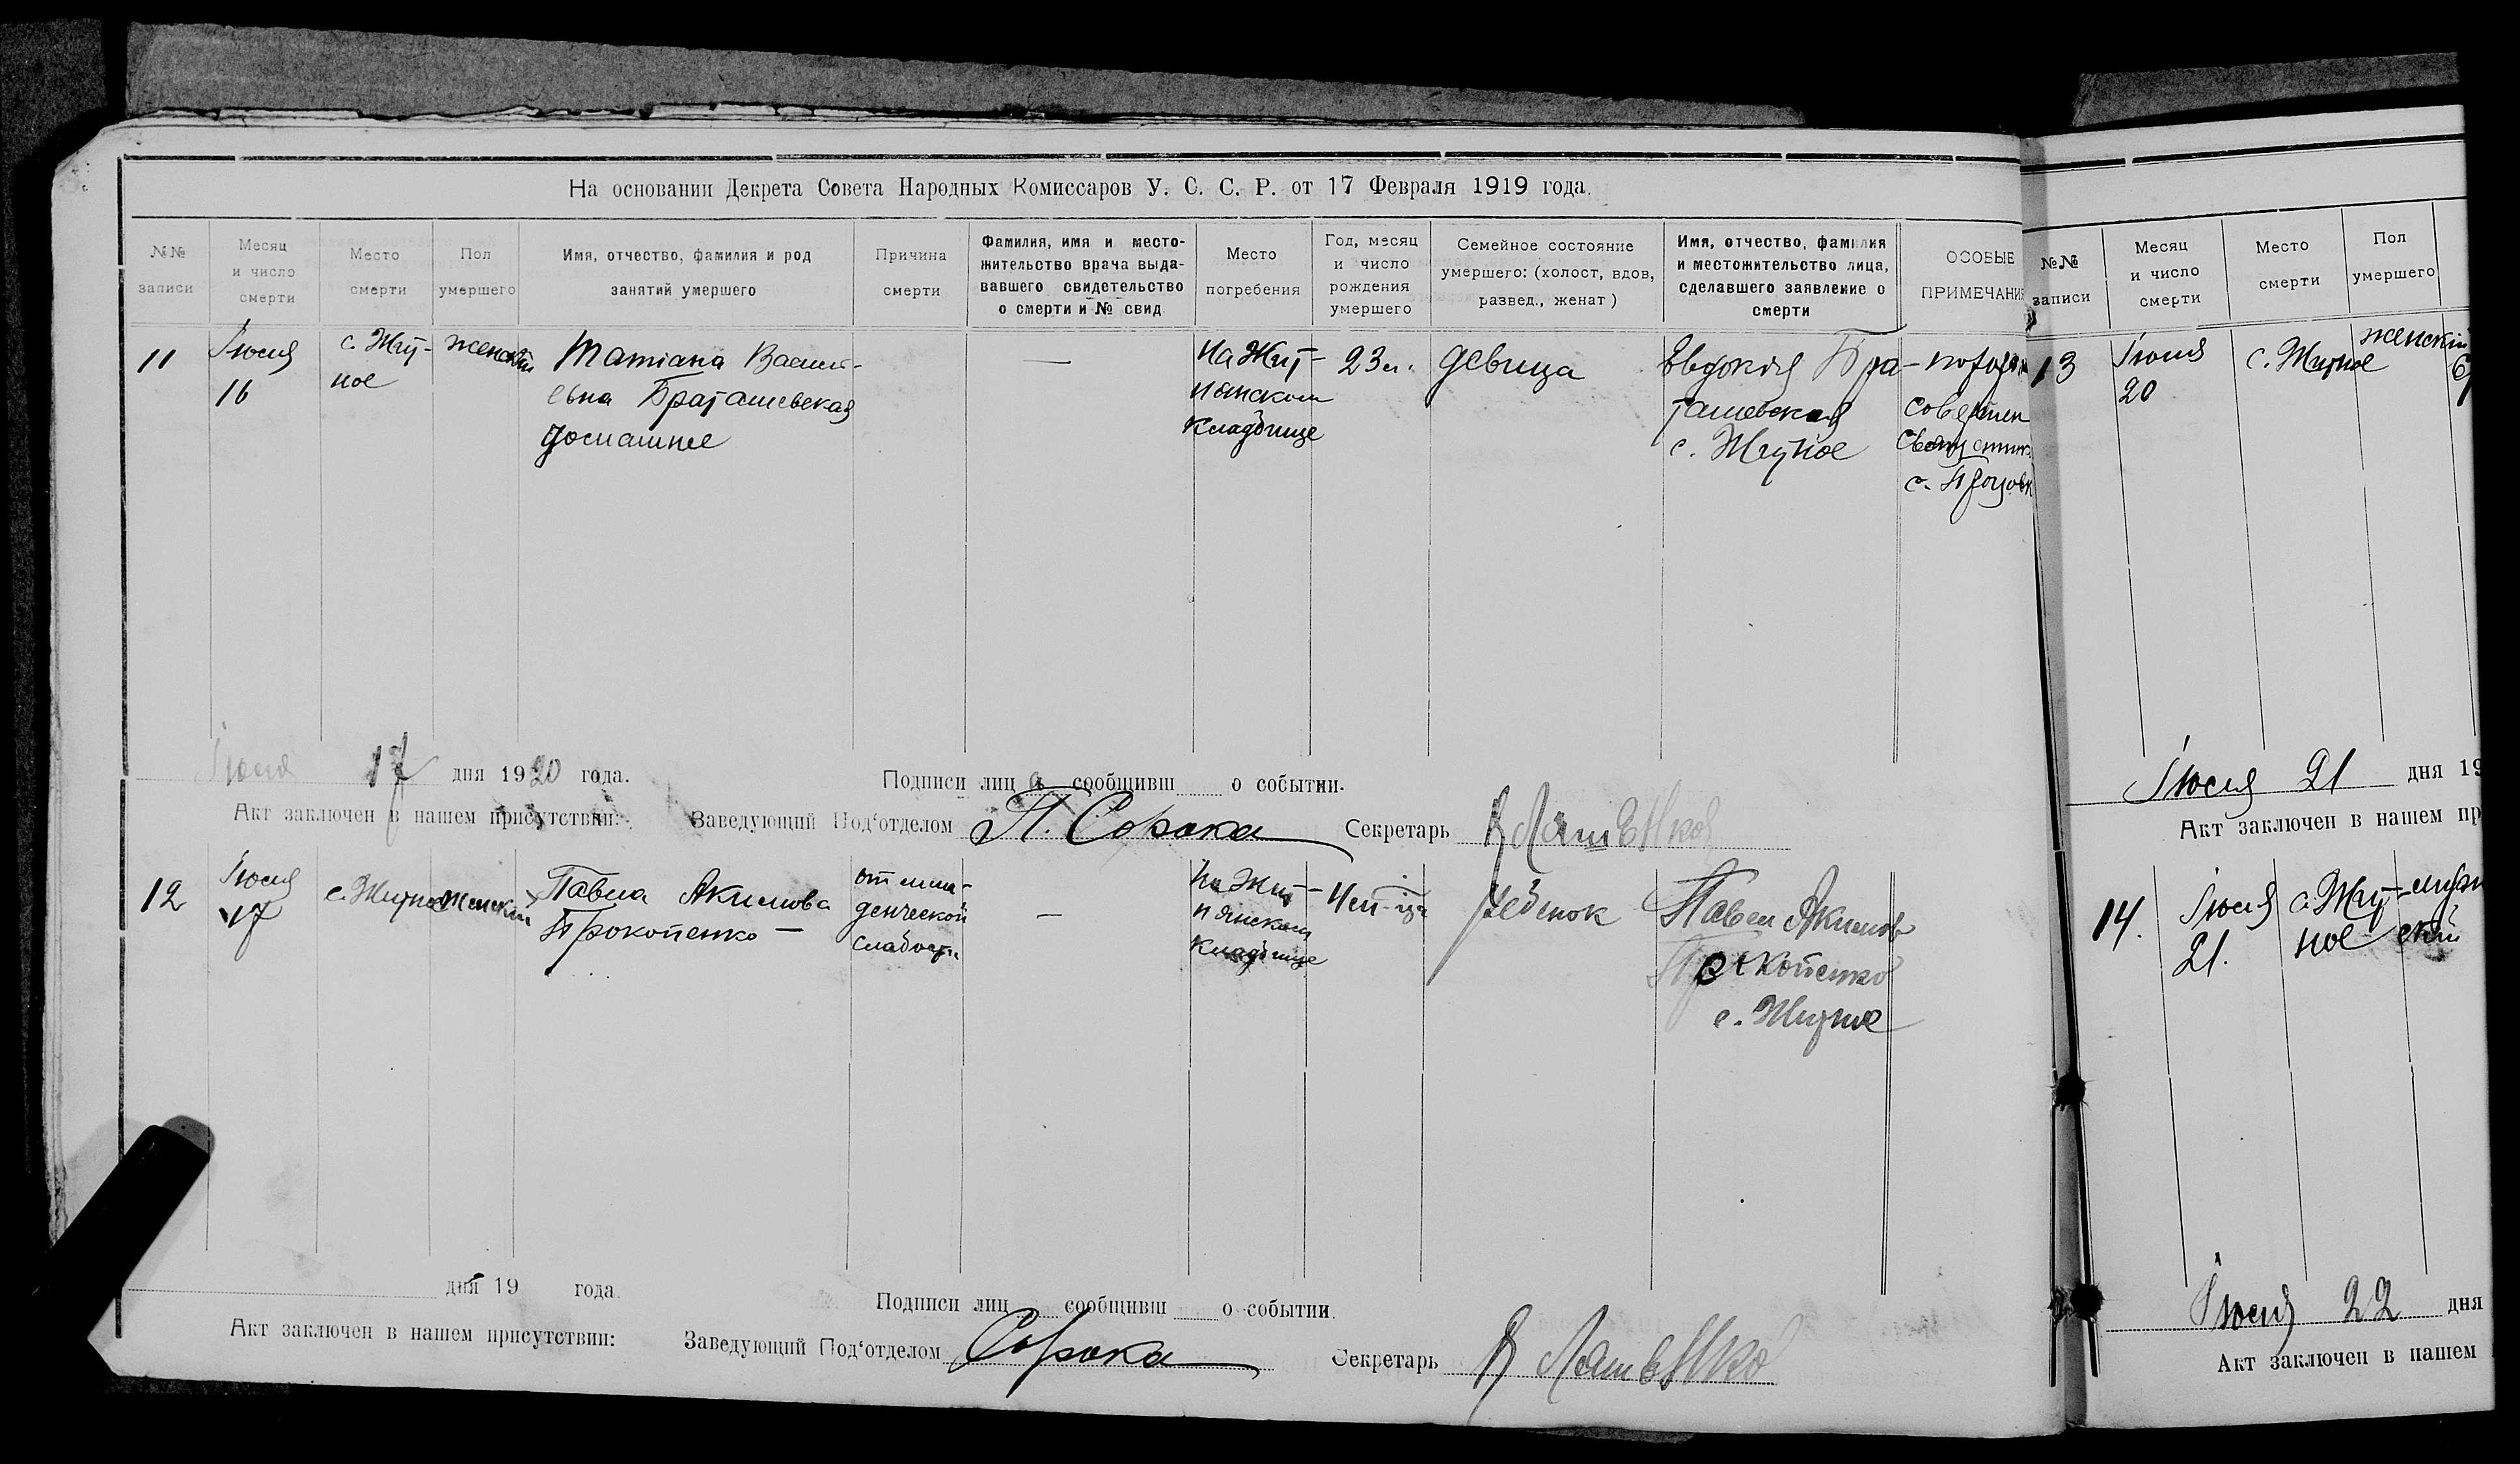 На основании Декрета Совета Народных Комиссаров У. С. С. Р. от 17 Февраля 1919 года.
№№
записи
Месяц
и число
смерти
Место
смерти
Пол
умершего
Имя, отчество, фамилия и род
занятий умершего
Причина
смерти
Фамилия, имя и место-
жительство врача выда-
вавшего свидетельство
о смерти и № свид
Место
погребения
Год, месяц
и число
рождения
умершего
Семейное состояние
умершего: (холост, вдов,
развед., женат)
Имя, отчество, фамилия
и местожительство лица,
сделавшего заявление о
смерти
ОСОБЫЕ
ПРИМЕЧАНИ
11
16
с. Жит-
ное
женский
Татіана Васил-
евна Браташевская
домашнее
—
На Жит-
нянском
кладбище
23 л.
девица
Евдокія Бра-
ташевская
с. Житное
17 дня 1920 года.
Подписи лиц а сообщивш о событии.
Акт заключен в нашем присутствии:
Заведующий Под'отделом П. Сорока
Секретарь
12
17
с. Житное
женский
Павла Акимова
Прокопенко —
от мла-
денческой
слабости
—
На Жит-
нянском
кладбище
ребенок
Павел Акимов
Прокопенко
с. Житное
дня 19 года
Подписи лиц сообщивш о событии.
Акт заключен в нашем присутствии:
Заведующий Под'отделом Сорока
Секретарь
№№
записи
Месяц
и число
смерти
Место
смерти
Пол
умершего
13
20
с. Житное
женский
21 дня 19
Акт заключен в нашем пр
14.
21.
с. Жит-
ное
22 дня
Акт заключен в нашем